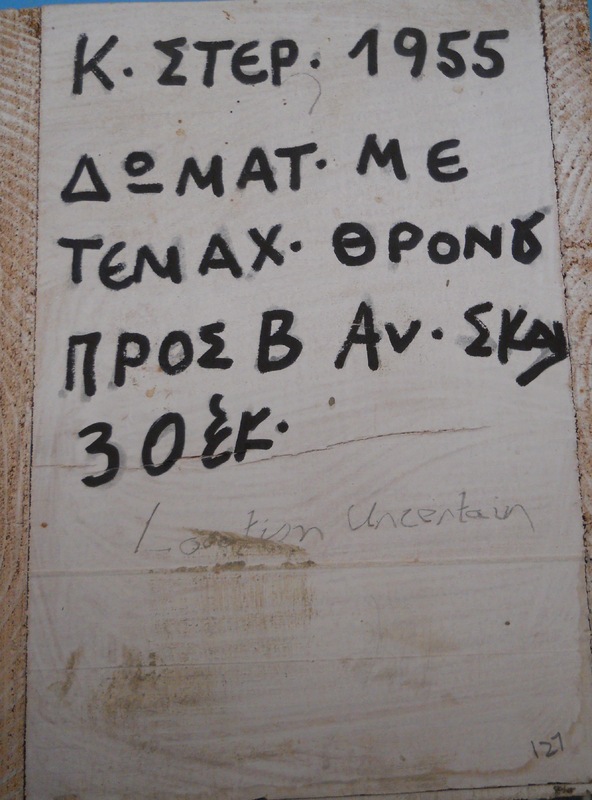 Κ. ΣΤΕΡ. 1955
ΔΩΜΑΤ. ΜΕ
ΤΕΜΑΧ. ΘΡΟΝȣ
ΠΡΟΣ Β Αν.
30 ἑκ.
Location Uncertain
127